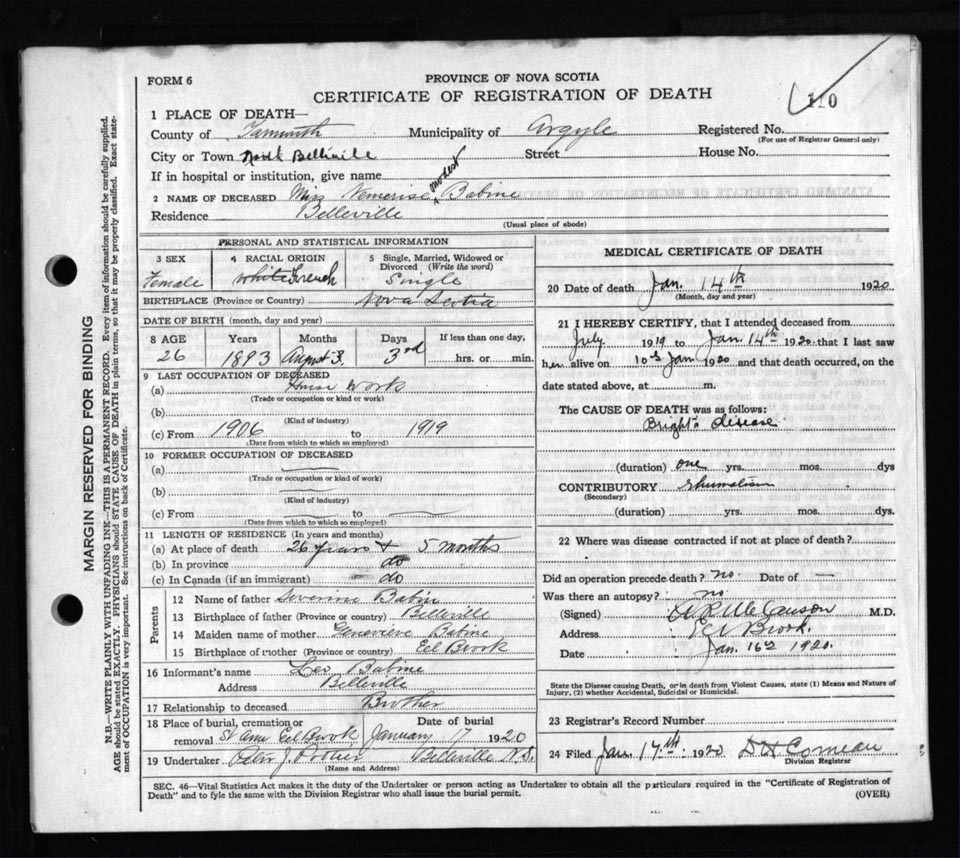 FORM 6
PROVINCE OF NOVA SCOTIA
CERTIFICATE OF REGISTRATION OF DEATH
110
1 PLACE OF DEATH—
County of Yarmouth Municipality of Argyle Registered No.
(For use of Registrar General only)
City or Town North Belliville Street House No.
If in hospital or institution, give name
modest
2 NAME OF DECEASED Miss Nemerise Babine
Residence Belleville
(Usual place of abode)
PERSONAL AND STATISTICAL INFORMATION
3 SEX Female
4 RACIAL ORIGIN White French
5 Single, Married, Widowed or Divorced (Write the word) Single
BIRTHPLACE (Province or Country) Nova Scotia
DATE OF BIRTH (month, day and year)
8 AGE Years Months Days If less than one day,
26 1893 August 3. 3rd hrs. or min.
9 LAST OCCUPATION OF DECEASED
(a) House Work
(Trade or occupation or kind of work)
(b)
(Kind of industry)
(c) From 1906 to 1919
(Date from which to which so employed)
10 FORMER OCCUPATION OF DECEASED
(a) —
(Trade or occupation or kind of work)
(b) —
(Kind of industry)
(c) From — to —
(Date from which to which so employed)
11 LENGTH OF RESIDENCE (In years and months)
(a) At place of death 26 years + 5 months
(b) In province do
(c) In Canada (if an immigrant) do
Parents
12 Name of father Severine Babin
13 Birthplace of father (Province or country) Belleville
14 Maiden name of mother Genevieve Babine
15 Birthplace of mother (Province or country) Eel Brook
16 Informant's name Leo Babine
Address Belleville
17 Relationship to deceased Brother
18 Place of burial, cremation or removal St Ann Eel Brook Date of burial January 17 1920
19 Undertaker J. Pothier Belleville N.S.
(Name and Address)
MEDICAL CERTIFICATE OF DEATH
20 Date of death Jan. 14th 1920
(Month, day and year)
21 I HEREBY CERTIFY, that I attended deceased from
July 1919 to Jan 14th 1920 that I last saw
her alive on 10th Jan 1920 and that death occurred, on the
date stated above, at m.
The CAUSE OF DEATH was as follows:
Bright's disease
(duration) one yrs. mos. dys
CONTRIBUTORY Rhumatism
(Secondary)
(duration) yrs. mos. dys.
22 Where was disease contracted if not at place of death?
Did an operation precede death? no. Date of —
Was there an autopsy? no.
(Signed) M.D.
Address Eel Brook.
Date Jan. 16th 1920.
State the Disease causing Death, or in death from Violent Causes, state (1) Means and Nature of
Injury, (2) whether Accidental, Suicidal or Homicidal.
23 Registrar's Record Number
24 Filed Jan. 17th. 1920 D H Comeau
Division Registrar
SEC. 46—Vital Statistics Act makes it the duty of the Undertaker or person acting as Undertaker to obtain all the particulars required in the "Certificate of Registration of
Death" and to fyle the same with the Division Registrar who shall issue the burial permit.
(OVER)
MARGIN RESERVED FOR BINDING
N.B.—WRITE PLAINLY WITH UNFADING INK—THIS IS A PERMANENT RECORD. Every item of information should be carefully supplied.
AGE should be stated EXACTLY. PHYSICIANS should STATE CAUSE OF DEATH in plain terms, so that it may be properly classified. Exact state-
ment of OCCUPATION is very important. See instructions on back of Certificate.